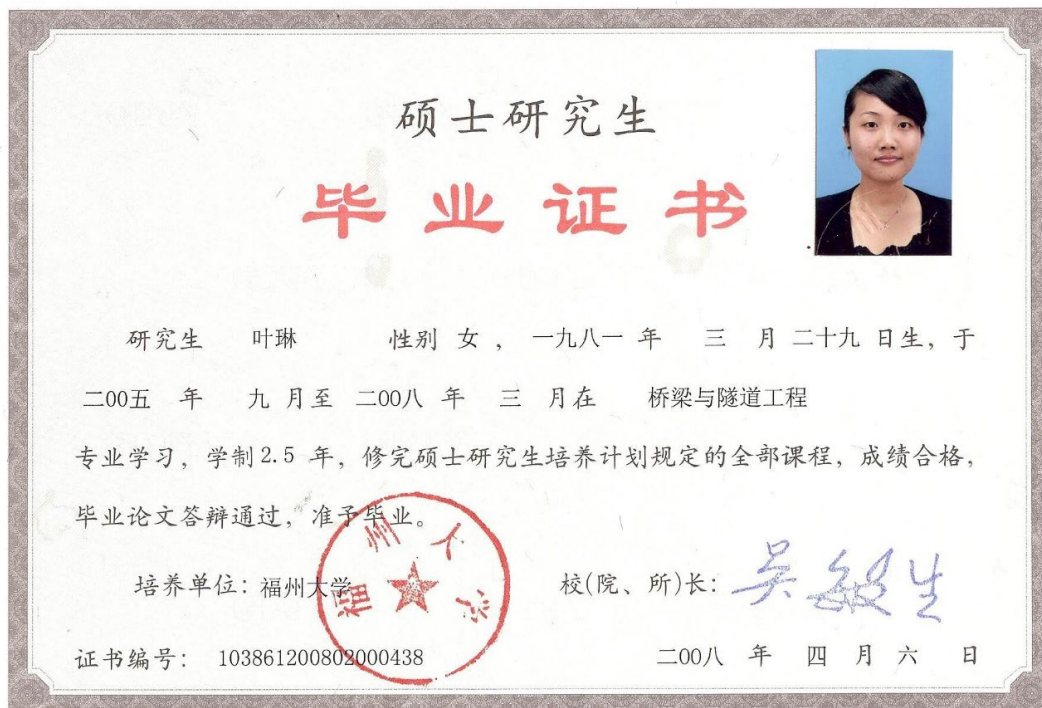 硕士研究生
毕业证书
研究生 叶琳 性别 女 ， 一九八一 年 三 月 二十九 日生，于
二00五 年 九 月至 二00八 年 三 月在 桥梁与隧道工程
专业学习，学制 2.5 年，修完硕士研究生培养计划规定的全部课程，成绩合格，
毕业论文答辩通过，准予毕业。
培养单位：福州大学 校(院、所)长：吴敏生
福州大学
证书编号： 103861200802000438 二00八 年 四 月 六 日